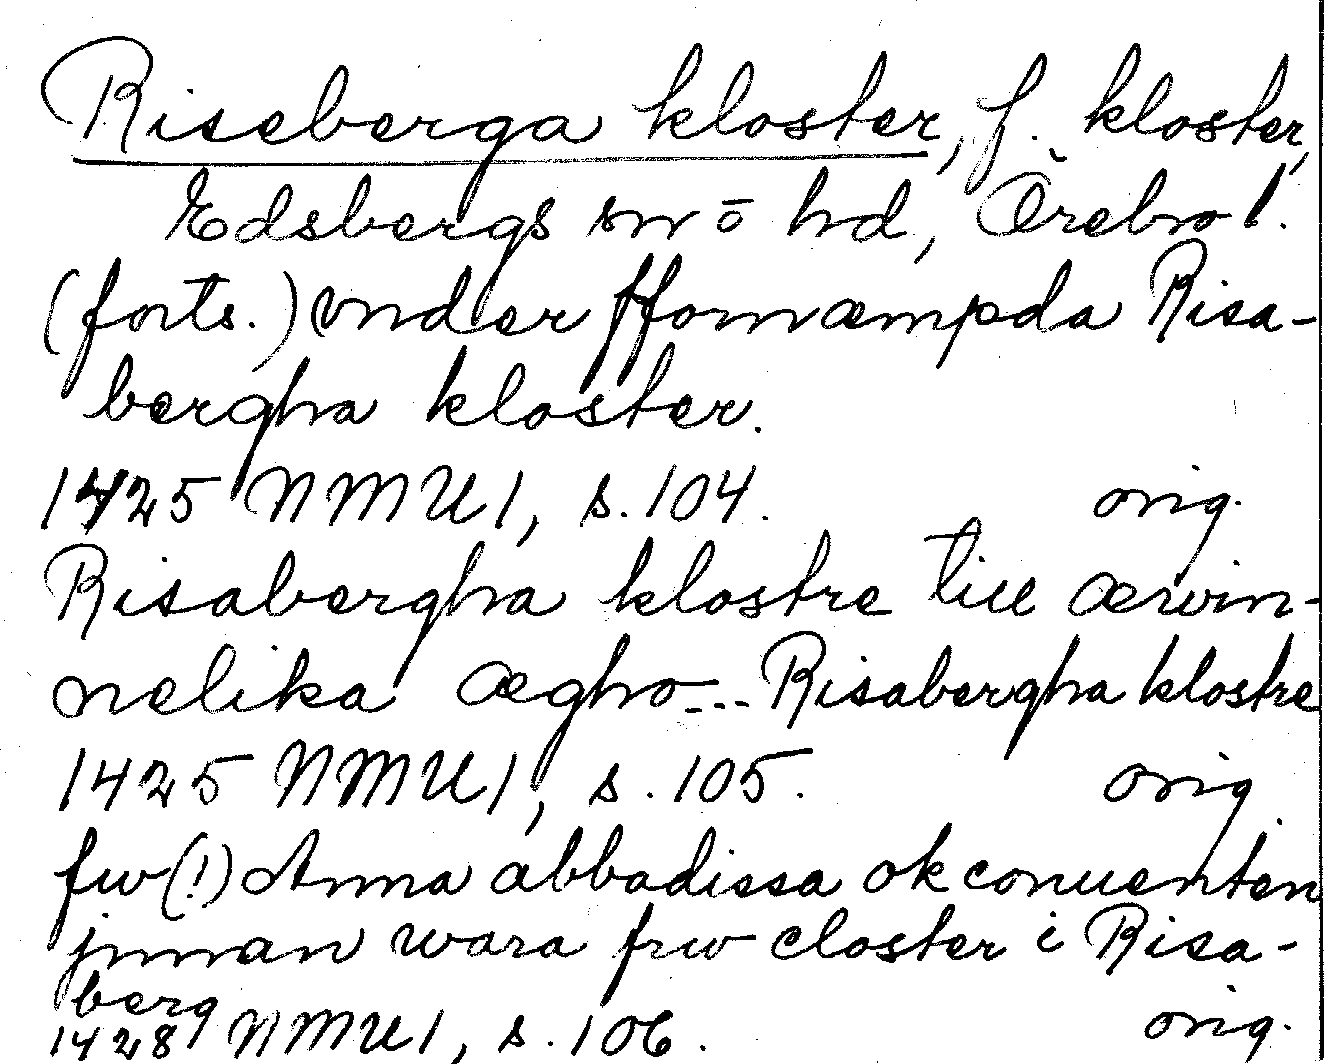 Riseberga kloster, f. kloster,
Edsbergs sn o hd, Örebro l.
(forts.) vnder ffornæmpda Risa-
bergha kloster.
1425 NMU 1, s. 104. orig.
Risabergha klostre till ærwin-
nelika ægho --- Risabergha klostre
1425 NMU 1, s. 105. orig.
fw (!) Anna abbadissa ok conuenten
jnnan wara frw closter i Risa-
berg
1428 NMU 1, s. 106. orig.